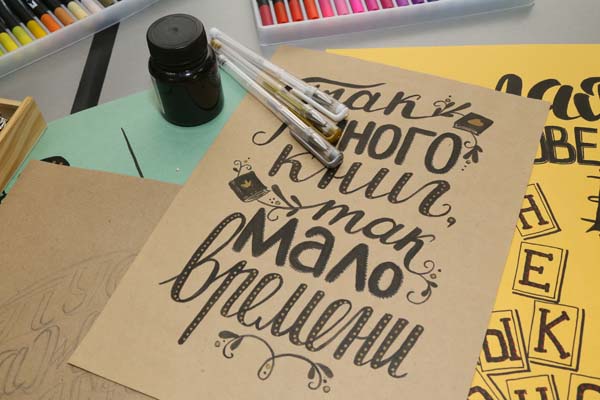 так
много
книг,
так
мало
времени
Н
Е
К
Ы